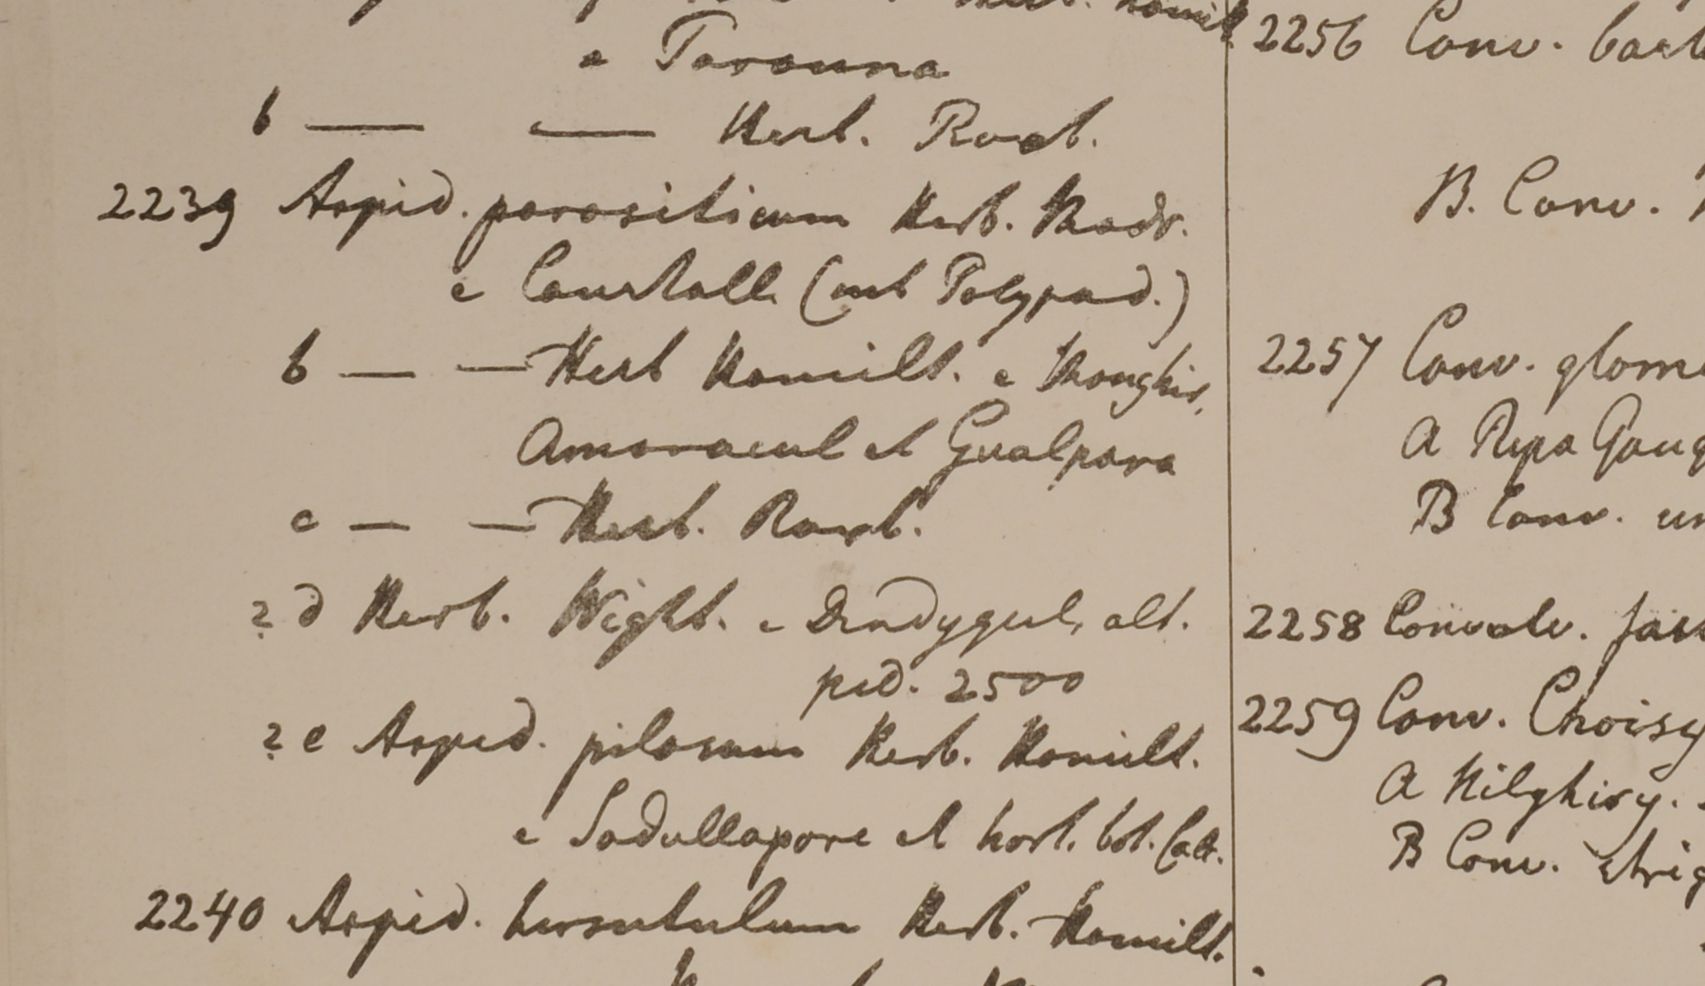 Herb. Hamilt.
e Tarouna
b — — Herb. Roxb.
2239 Aspid. parasiticum Herb. Madr.
e Courtall. (sub Polypod.)
b — — Herb Hamilt. e Monghir,
et Gualpara
c — — Herb. Roxb.
? d Herb. Wight. e Dindygul, alt.
ped. 2500
? e Aspid. pilosum Herb. Hamilt.
e Sadullapore et hort. bot. Calc.
2240 Aspid. hirsutulum Herb. Hamilt.
2256 Conv.
B. Conv.
2257 Conv. glome
A Ripa Gang
B Conv. un
2258 Convolv.
2259 Conv. Choisy
A Nilghiry.
B Conv. strig